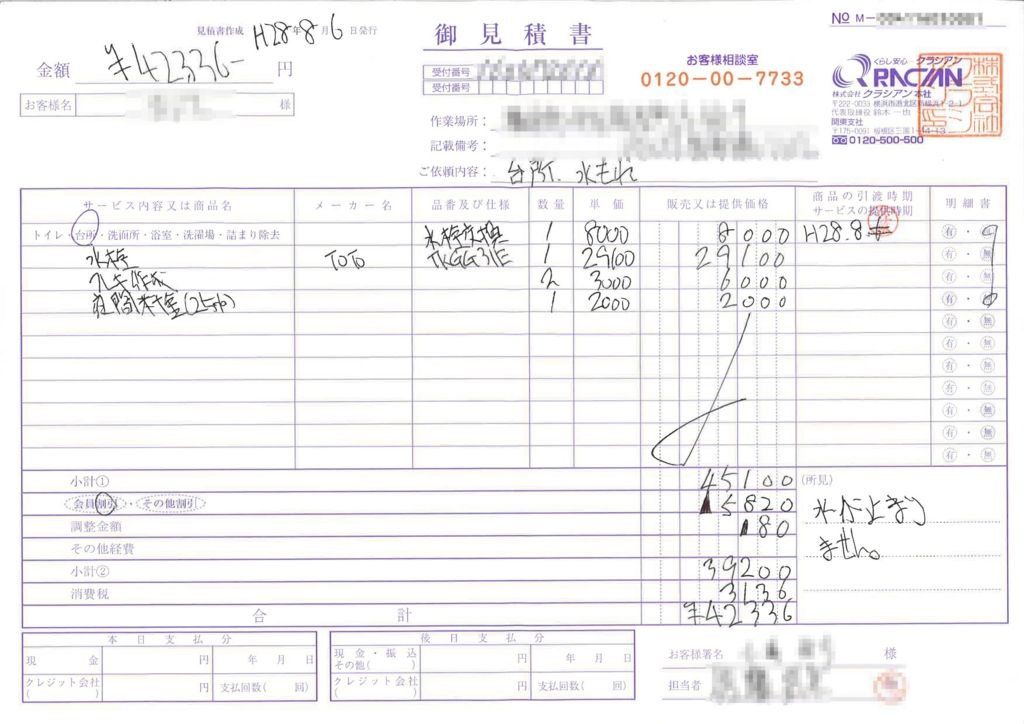 見積書作成 H28年8月6日発行
御見積書
№ M-
金額 ¥42336- 円
お客様名 様
受付番号
受付番号
作業場所:
記載備考:
ご依頼内容: 台所、水もれ
お客様相談室
0120-00-7733
くらし安心 クラシアン
株式会社 クラシアン 本社
〒222-0033 横浜市港北区新横浜1-2-1
代表取締役 鈴木一也
関東支社
〒175-0091 板橋区三園1-44-13
0120-500-500
サービス内容又は商品名 メーカー名 品番及び仕様 数量 単価 販売又は提供価格 商品の引渡時期 サービスの提供時期 明細書
トイレ・台所・洗面所・浴室・洗濯場・詰まり除去 水栓交換 1 8000 8000 H28.8.6 有・
水栓 TOTO TKGG31E 1 29100 29100 有・無
2 3000 6000 有・無
1 2000 2000 有・
有・無
有・無
有・無
有・無
有・無
有・無
有・無
小計① 45100
会員割引・その他割引 ▲5820
調整金額 ▲80
その他経費
小計② 39200
消費税 3136
合計 ¥42336
(所見)
水がとまり
ません。
本日支払分
現金 円 年 月 日
クレジット会社 ( ) 円 支払回数( 回)
後日支払分
現金・振込 その他( ) 円 年 月 日
クレジット会社 ( ) 円 支払回数( 回)
お客様署名 様
担当者